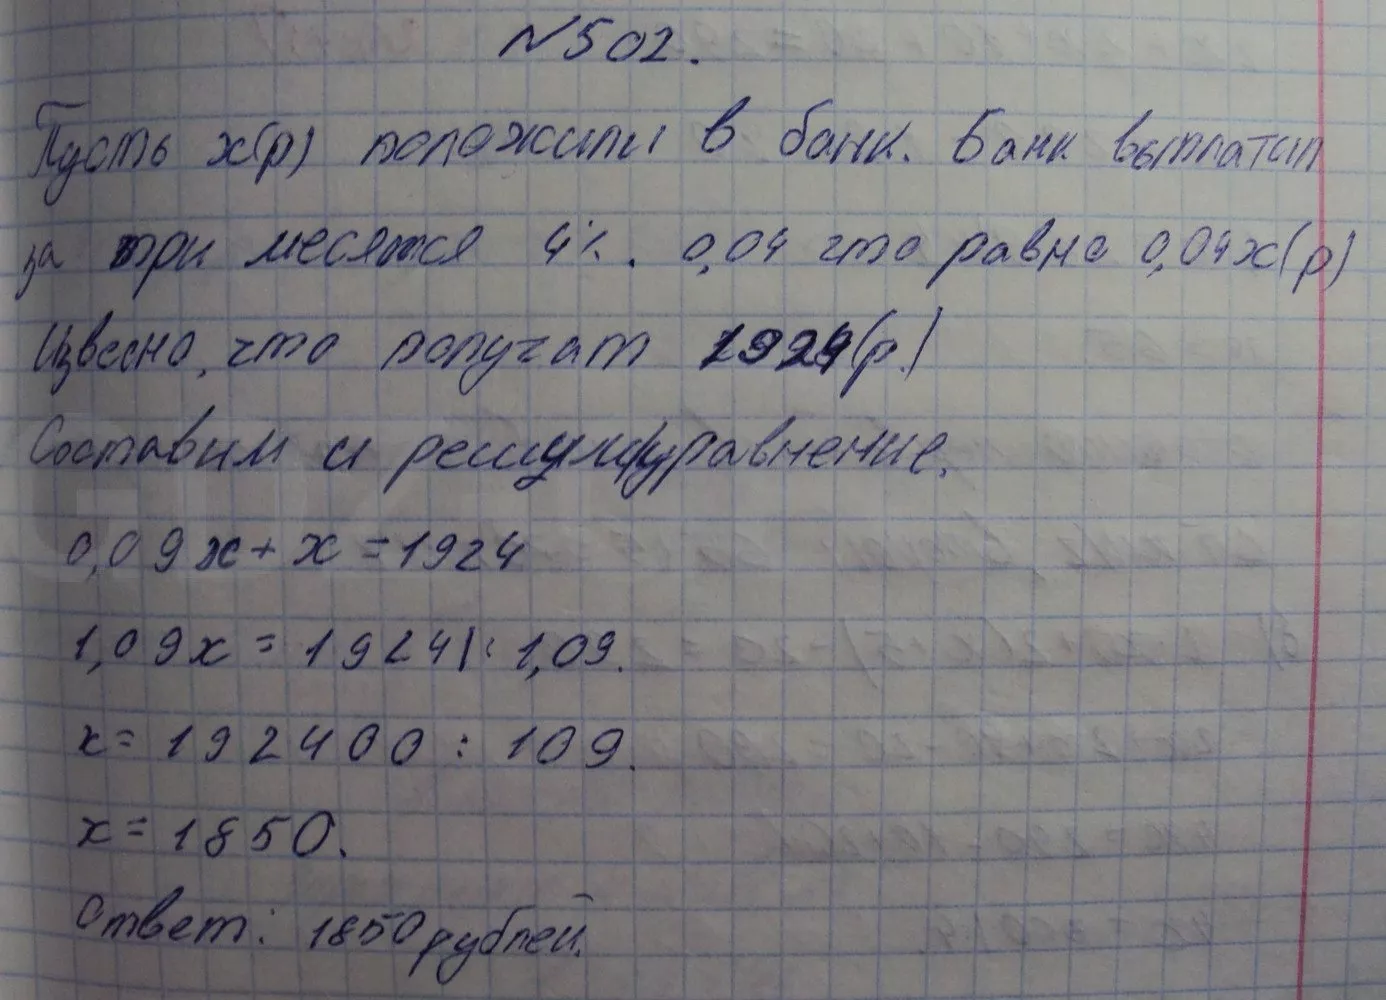 №502.
Пусть x(р) положили в банк. Банк выплатил
за три месяца 4%. 0,04 что равно 0,04x(р)
Извесно, что получат 1924(р.)
Составим и решим уравнение.
0,09x+x=1924
1,09x=1924|:1,09.
x=192400:109.
x=1850.
Ответ: 1850 рублей.